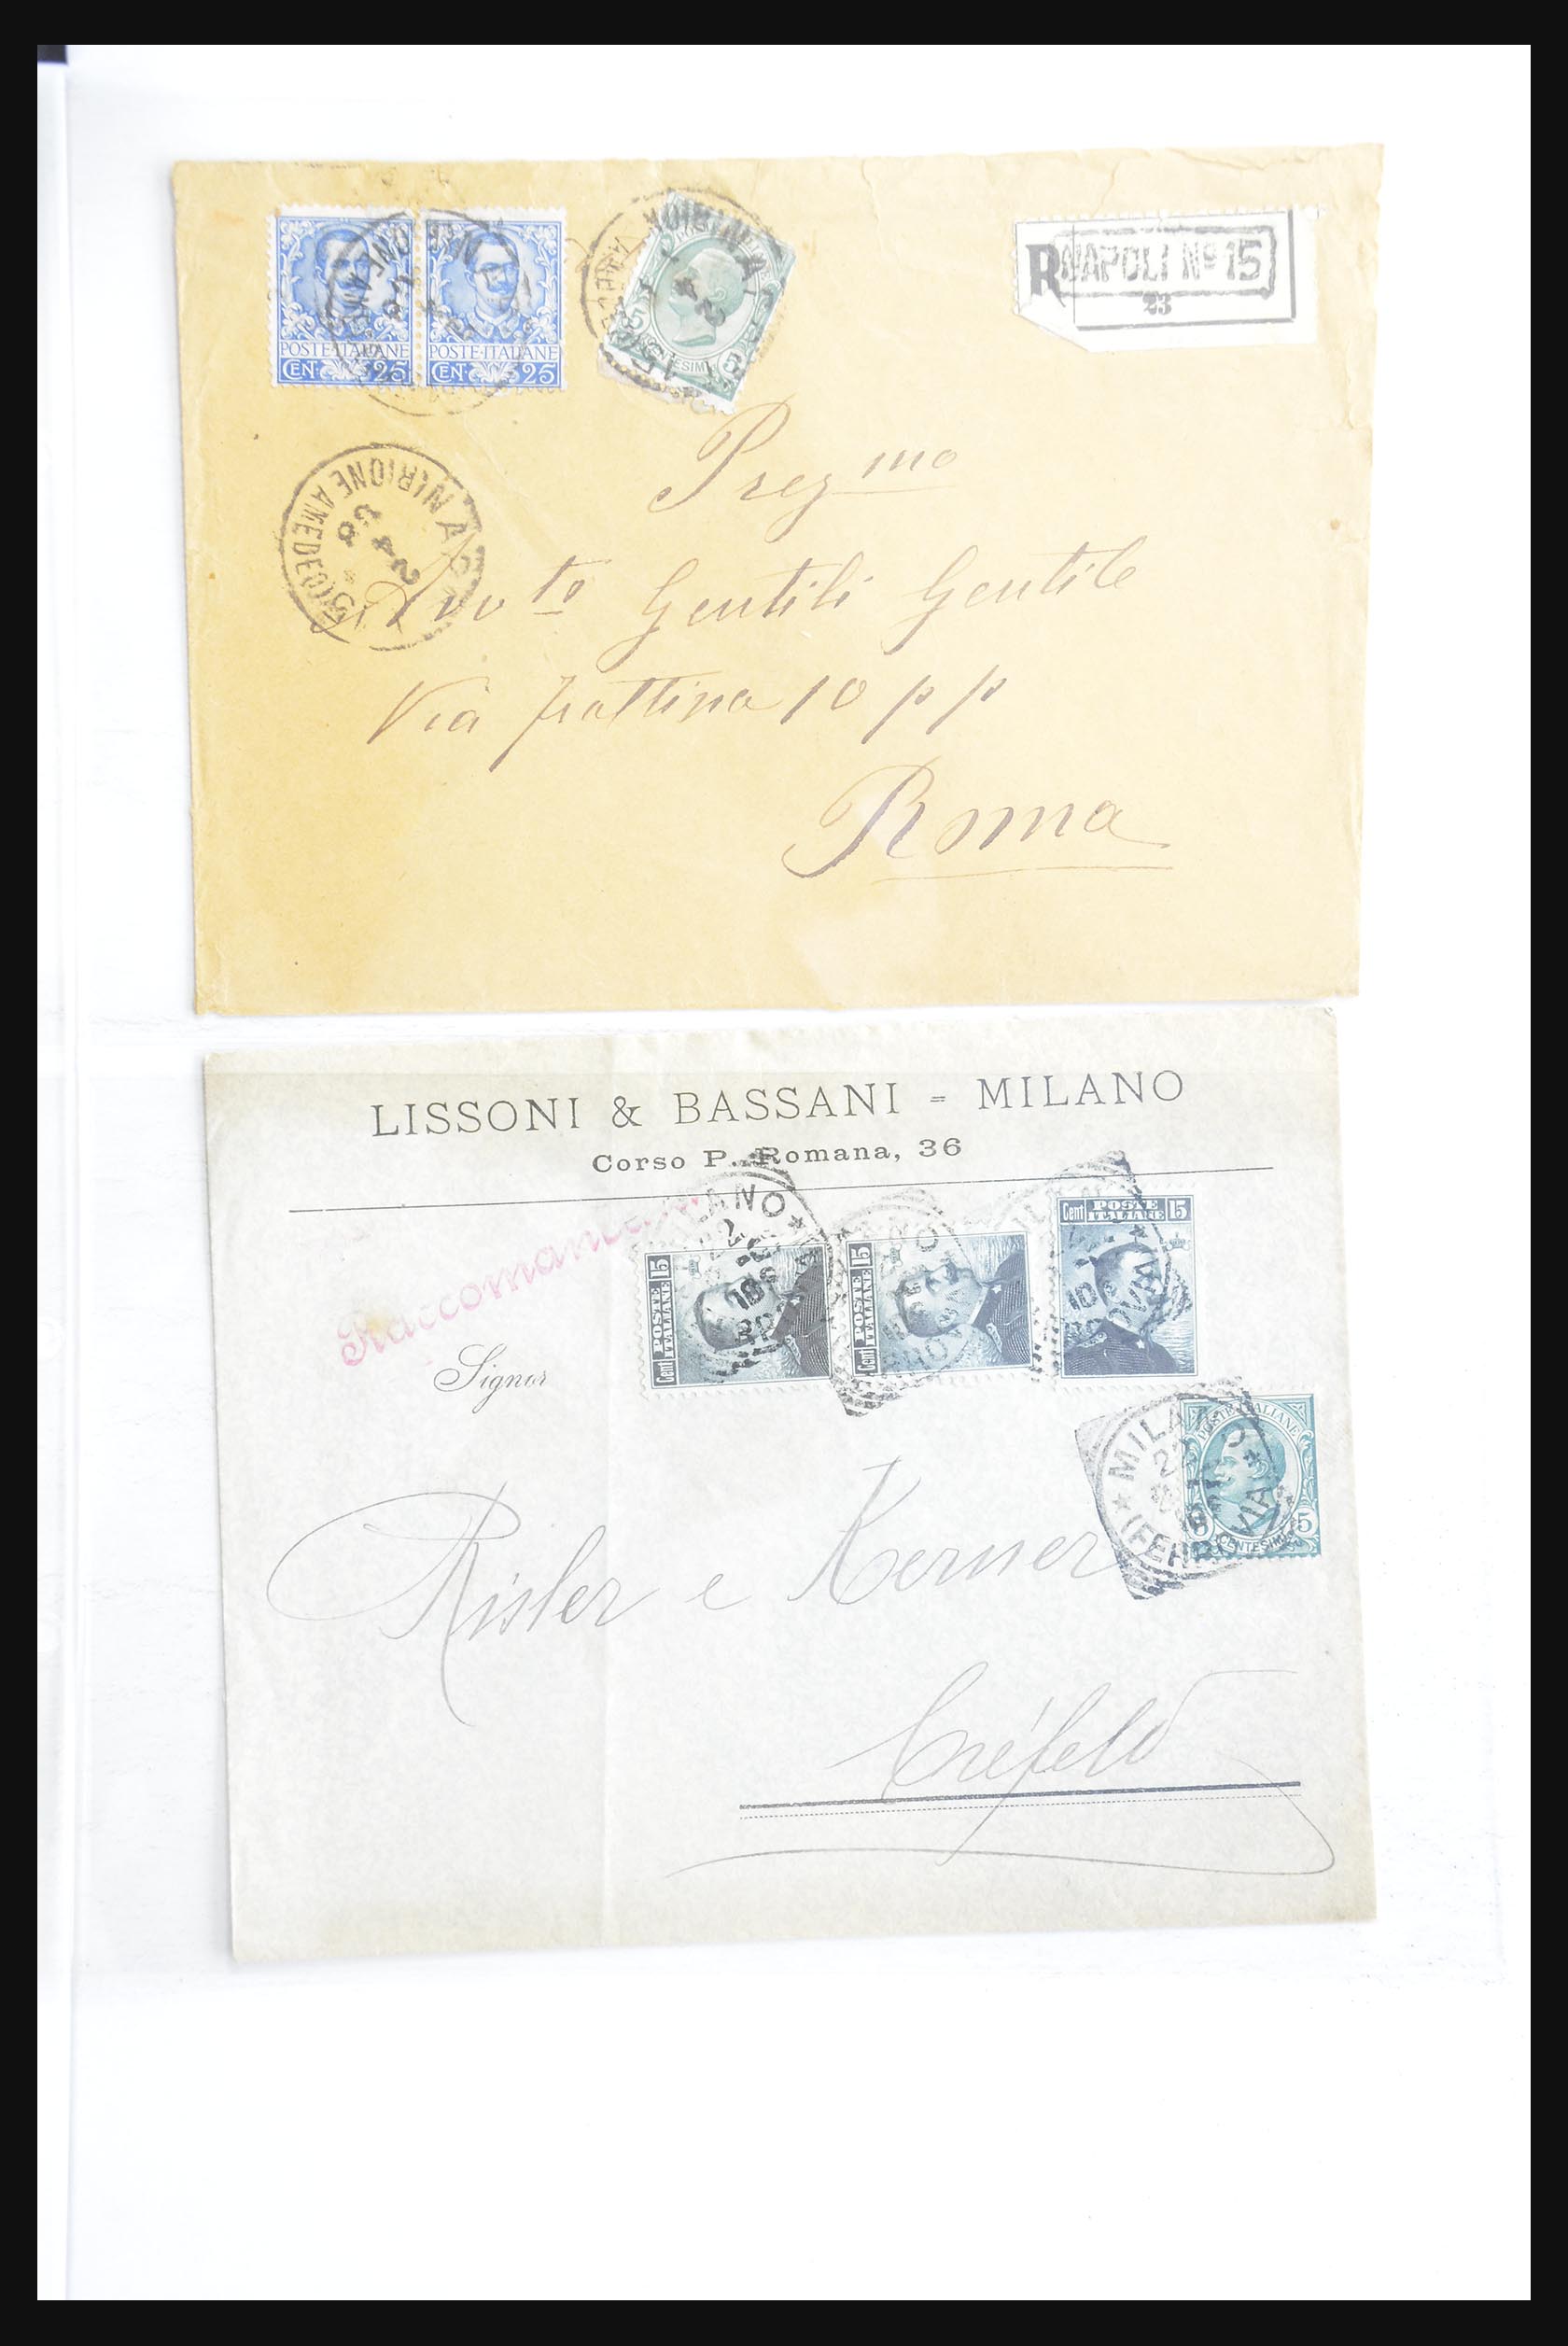 POSTE·ITALIANE
CEN. 25
POSTE·ITALIANE
CEN. 25
5
R NAPOLI Nº 15
23
Preg mo
Avv to Gentili Gentile
Via Frattina 10 p p
Roma
LISSONI & BASSANI = MILANO
Corso P. Romana, 36
Raccomandata
Signor
Cent POSTE ITALIANE 15
Cent POSTE ITALIANE 15
Cent POSTE ITALIANE 15
MILANO
(FERROVIA)
POSTE ITALIANE
CENTESIMI 5
Risler e Kerner
Créfeld